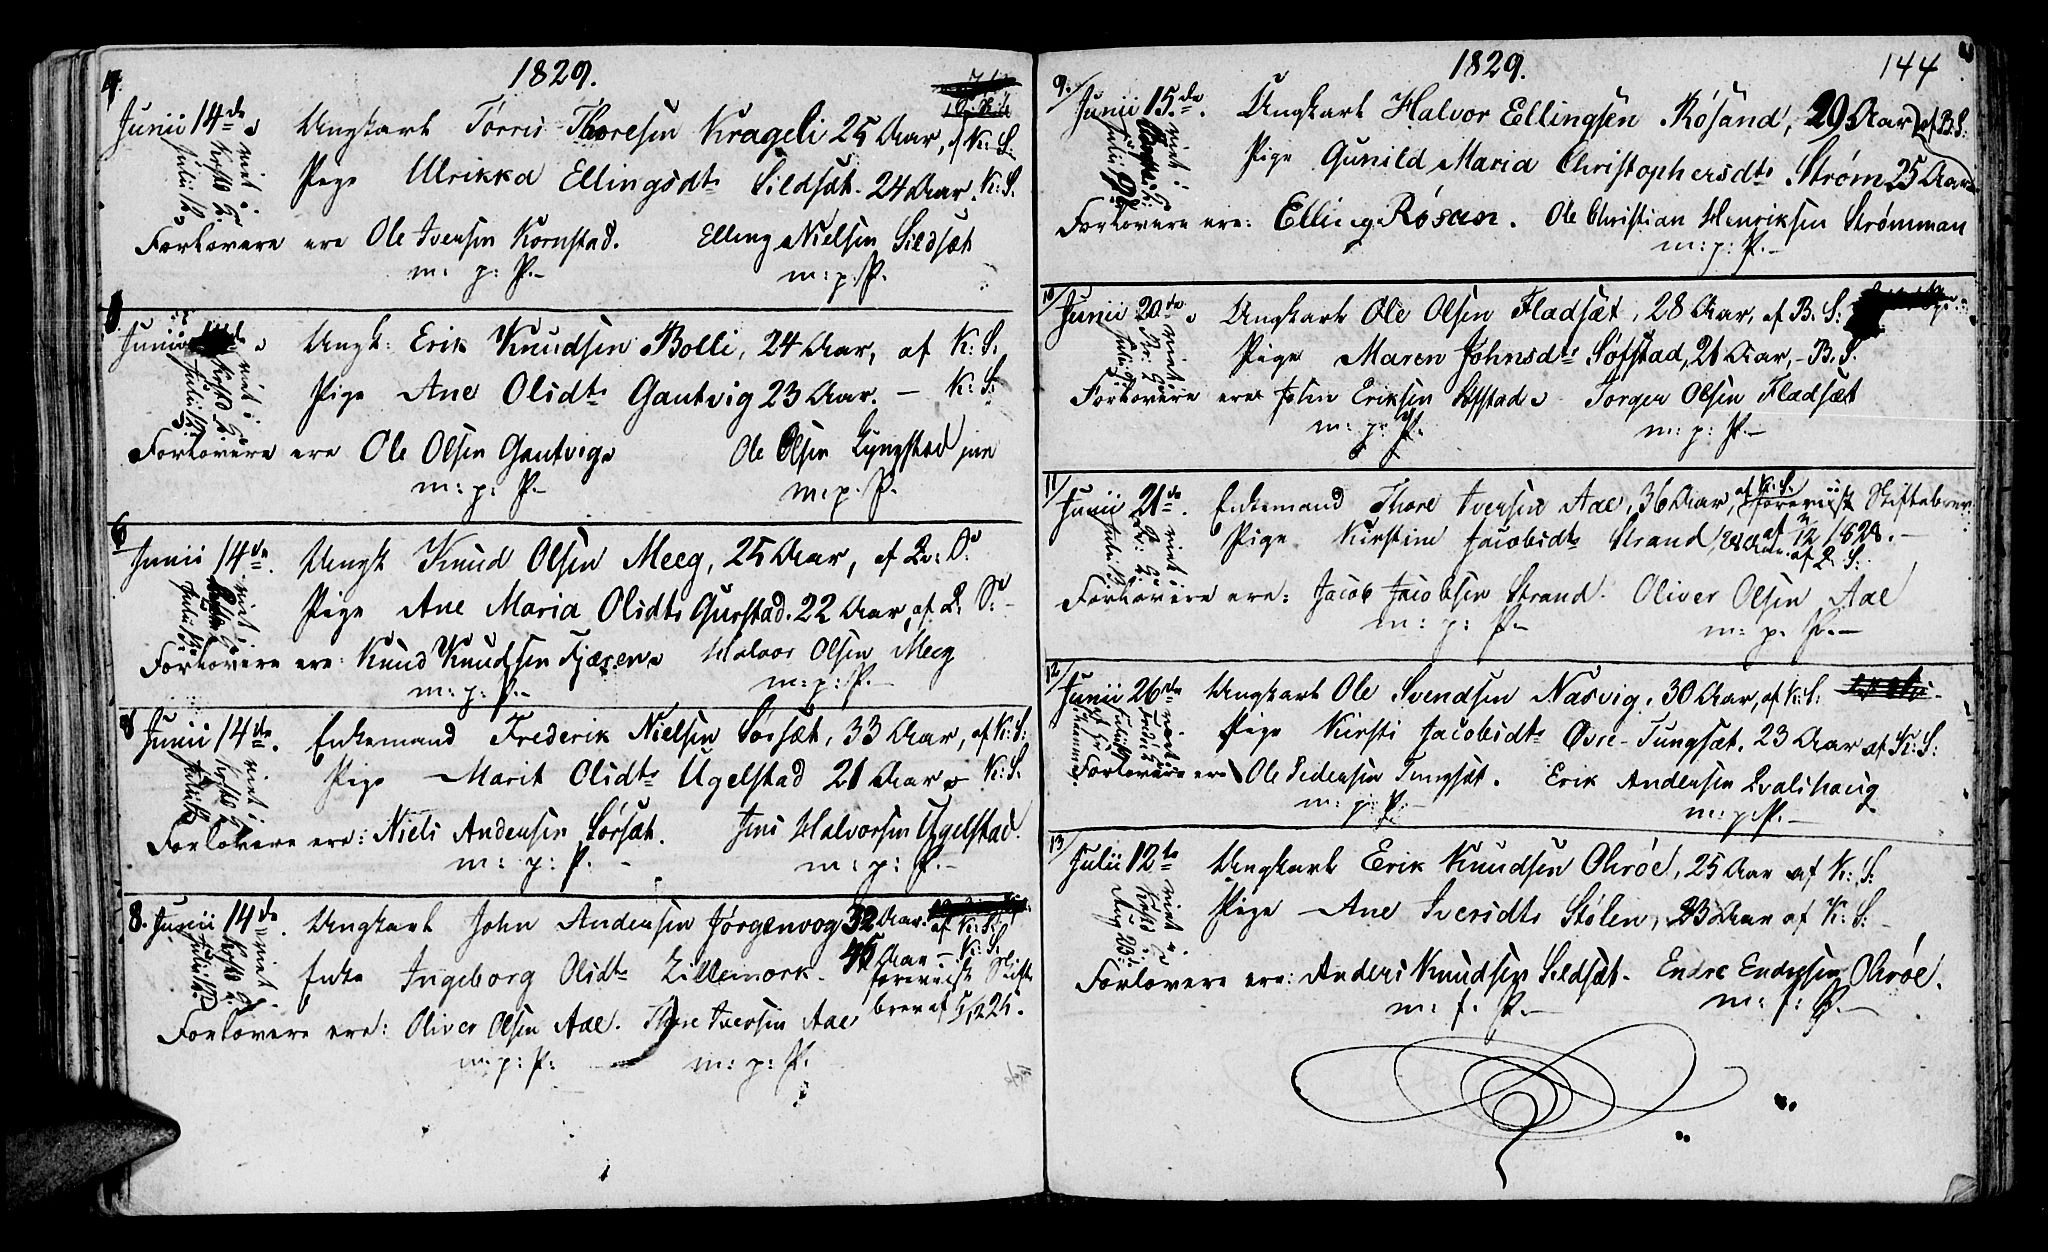 1829.
4.
Junii 14de Ungkarl Tørris Thoresen Krageli 25 Aar, af K: S:
viet i Krsts K: Julii 12
Pige Ulrikka Ellingsdtr Sildsæt. 24 Aar. K: S.
Forlovere ere Ole Iversen Kornstad. Elling Nielsen Sildsæt
m: p: P.- m: p: P.
Junii Ungk: Erik Knudsen Bolli, 24 Aar, af K: S.
viet i Krsts K: Julii 12.
Pige Ane Olsdtr Gautvig 23 Aar. - K: S:
Forlovere ere Ole Olsen Gautvig Ole Olsen Lyngstad jun
m: p: P- m: p. P.
6
Junii 14de Ungk Knud Olsen Meeg, 25 Aar, af
viet i Julii
Pige Ane Maria Olsdtr Gurstad. 22 Aar, af
Forlovere ere: Knud Knudsen Halvor Olsen Meeg
m: p: P.- m: p: P.-
Junii 14de. Enkemand Frederik Nielsen Sørsæt, 33 Aar, af K: S:
viet i Krsts K: Julii
Pige Marit Olsdtr Ugelstad 21 Aar K: S:
Forlovere ere: Niels Andersen Sørsæt. Jens Halvorsen Ugelstad.
m: p: P. - m: p: P.-
8. Junii 14de. Ungkarl John Andersen Jørgenvog 32 Aar. af K: S:
viet i Krsts K: Julii
Enke Ingeborg Olsdtr Lillemork. 45 Aar - K: S.
foreviist Skifte
brev af
Forlovere ere: Oliver Olsen Aae. Thore Iversen Aae
m: p: P. m: p: P.
1829. 144
9. Junii 15de. Ungkarl Halvor Ellingsen Røsand, 29 Aar af B. S:
viet i Julii
Pige Gunild Maria Christophersdtr Strøm 25 Aar
Forlovere ere: Elling Røsan. Ole Christian Henriksen Strømman
m: p: P.-
10 Junii 20de Ungkarl Ole Olsen Fladsæt, 28 Aar, af B. S:
viet i Julii
Pige Maren Johnsdtr Søfstad, 21 Aar, - B. S.
Forlovere ere John Eriksen Søfstad Torger Olsen Fladsæt
m: p: P. m: p: P.-
11 Junii 21de. Enkemand Thore Iversen Aae, 36 Aar, af K: S. foreviist Skiftebrev
viet i Julii
Pige Kirstine Jacobsdtr Strand, af 1828.-
Forlovere ere: Jacob Jacobsen Strand. Oliver Olsen Aae
m: p: P- m: p. P.-
12 Junii 26de Ungkarl Ole Svendsen Nasvig, 30 Aar, af K: S:
viet
Pige Kirsti Jacobsdtr Øvre-Tungsæt. 23 Aar af K: S:
Forlovere ere Ole Pedersen Tungsæt. Erik Andersen Qvalshaug
m: p: P.- m: p: P.-
13 Julii 12te Ungkarl Erik Knudsen Ohrøe, 25 Aar af K: S:
viet i Krsts K: Aug 23.
Pige Ane Iversdtr Stølen, 23 Aar af K: S:
Forlovere ere: Anders Knudsen Sildsæt. Endre Endresen Ohrøe.
m. f. P.- m: f: P.-